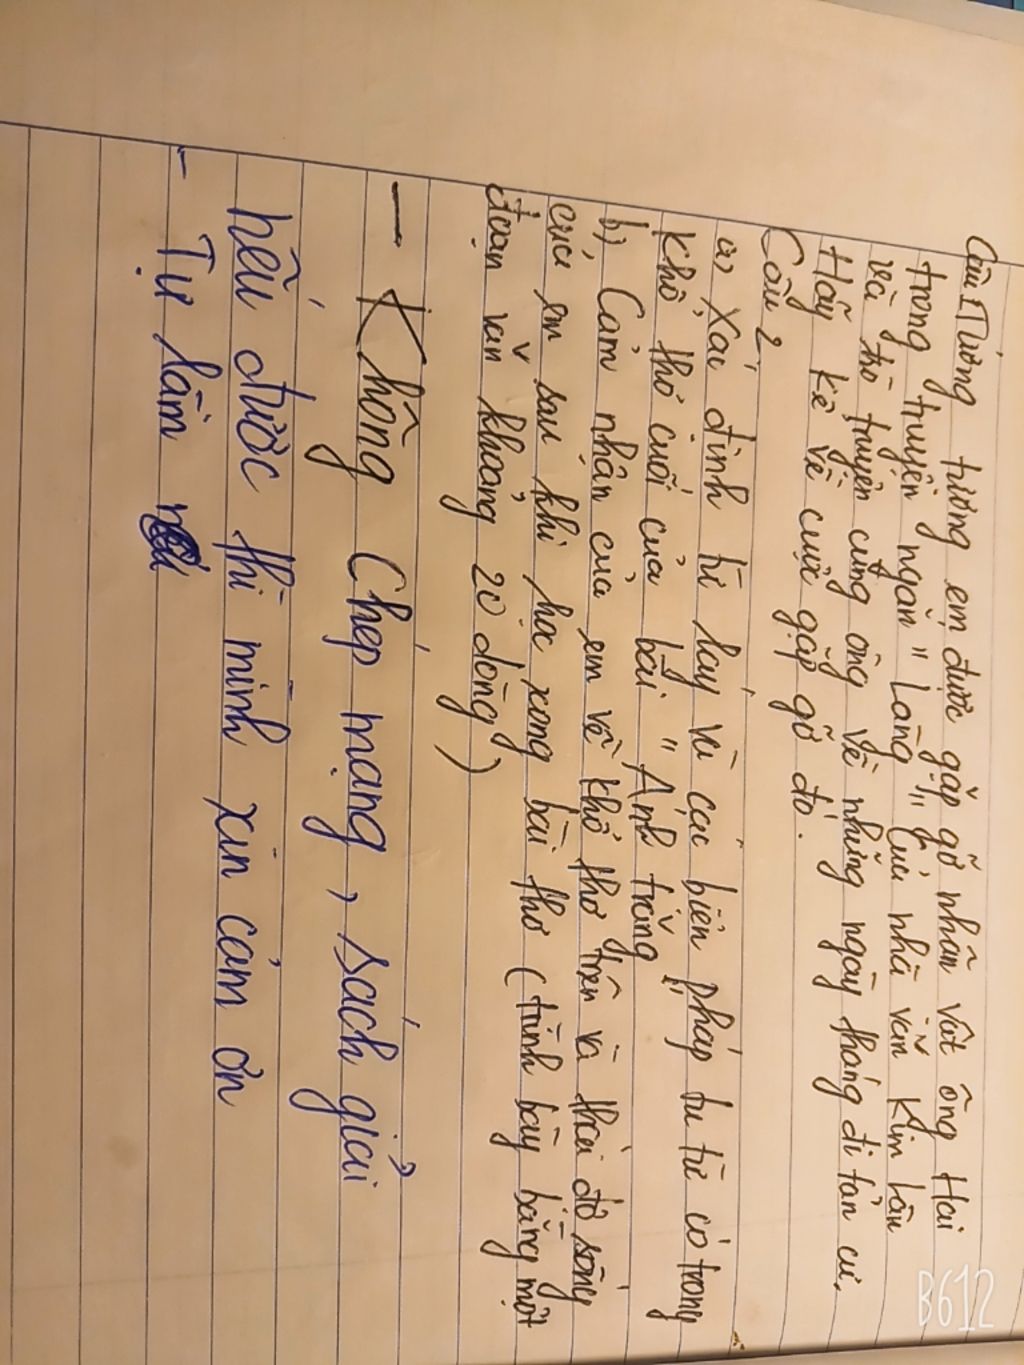 Câu 1. Tưởng tượng em được gặp gỡ nhân vật ông Hai
trong truyện ngắn " Làng " của nhà văn Kim Lân
và trò truyện cùng ông về những ngày tháng đi tản cư.
Hãy kể về cuộc gặp gỡ đó.
Câu 2
a, Xác định từ láy và các biện pháp tu từ có trong
khổ thơ cuối của bài " Ánh trăng "
b, Cảm nhận của em về khổ thơ trên và thái độ sống
của em sau khi học xong bài thơ ( trình bày bằng một
đoạn văn khoảng 20 dòng )
- Không Chép mạng , sách giải
nếu được thì mình xin cảm ơn
- Tự làm
B612